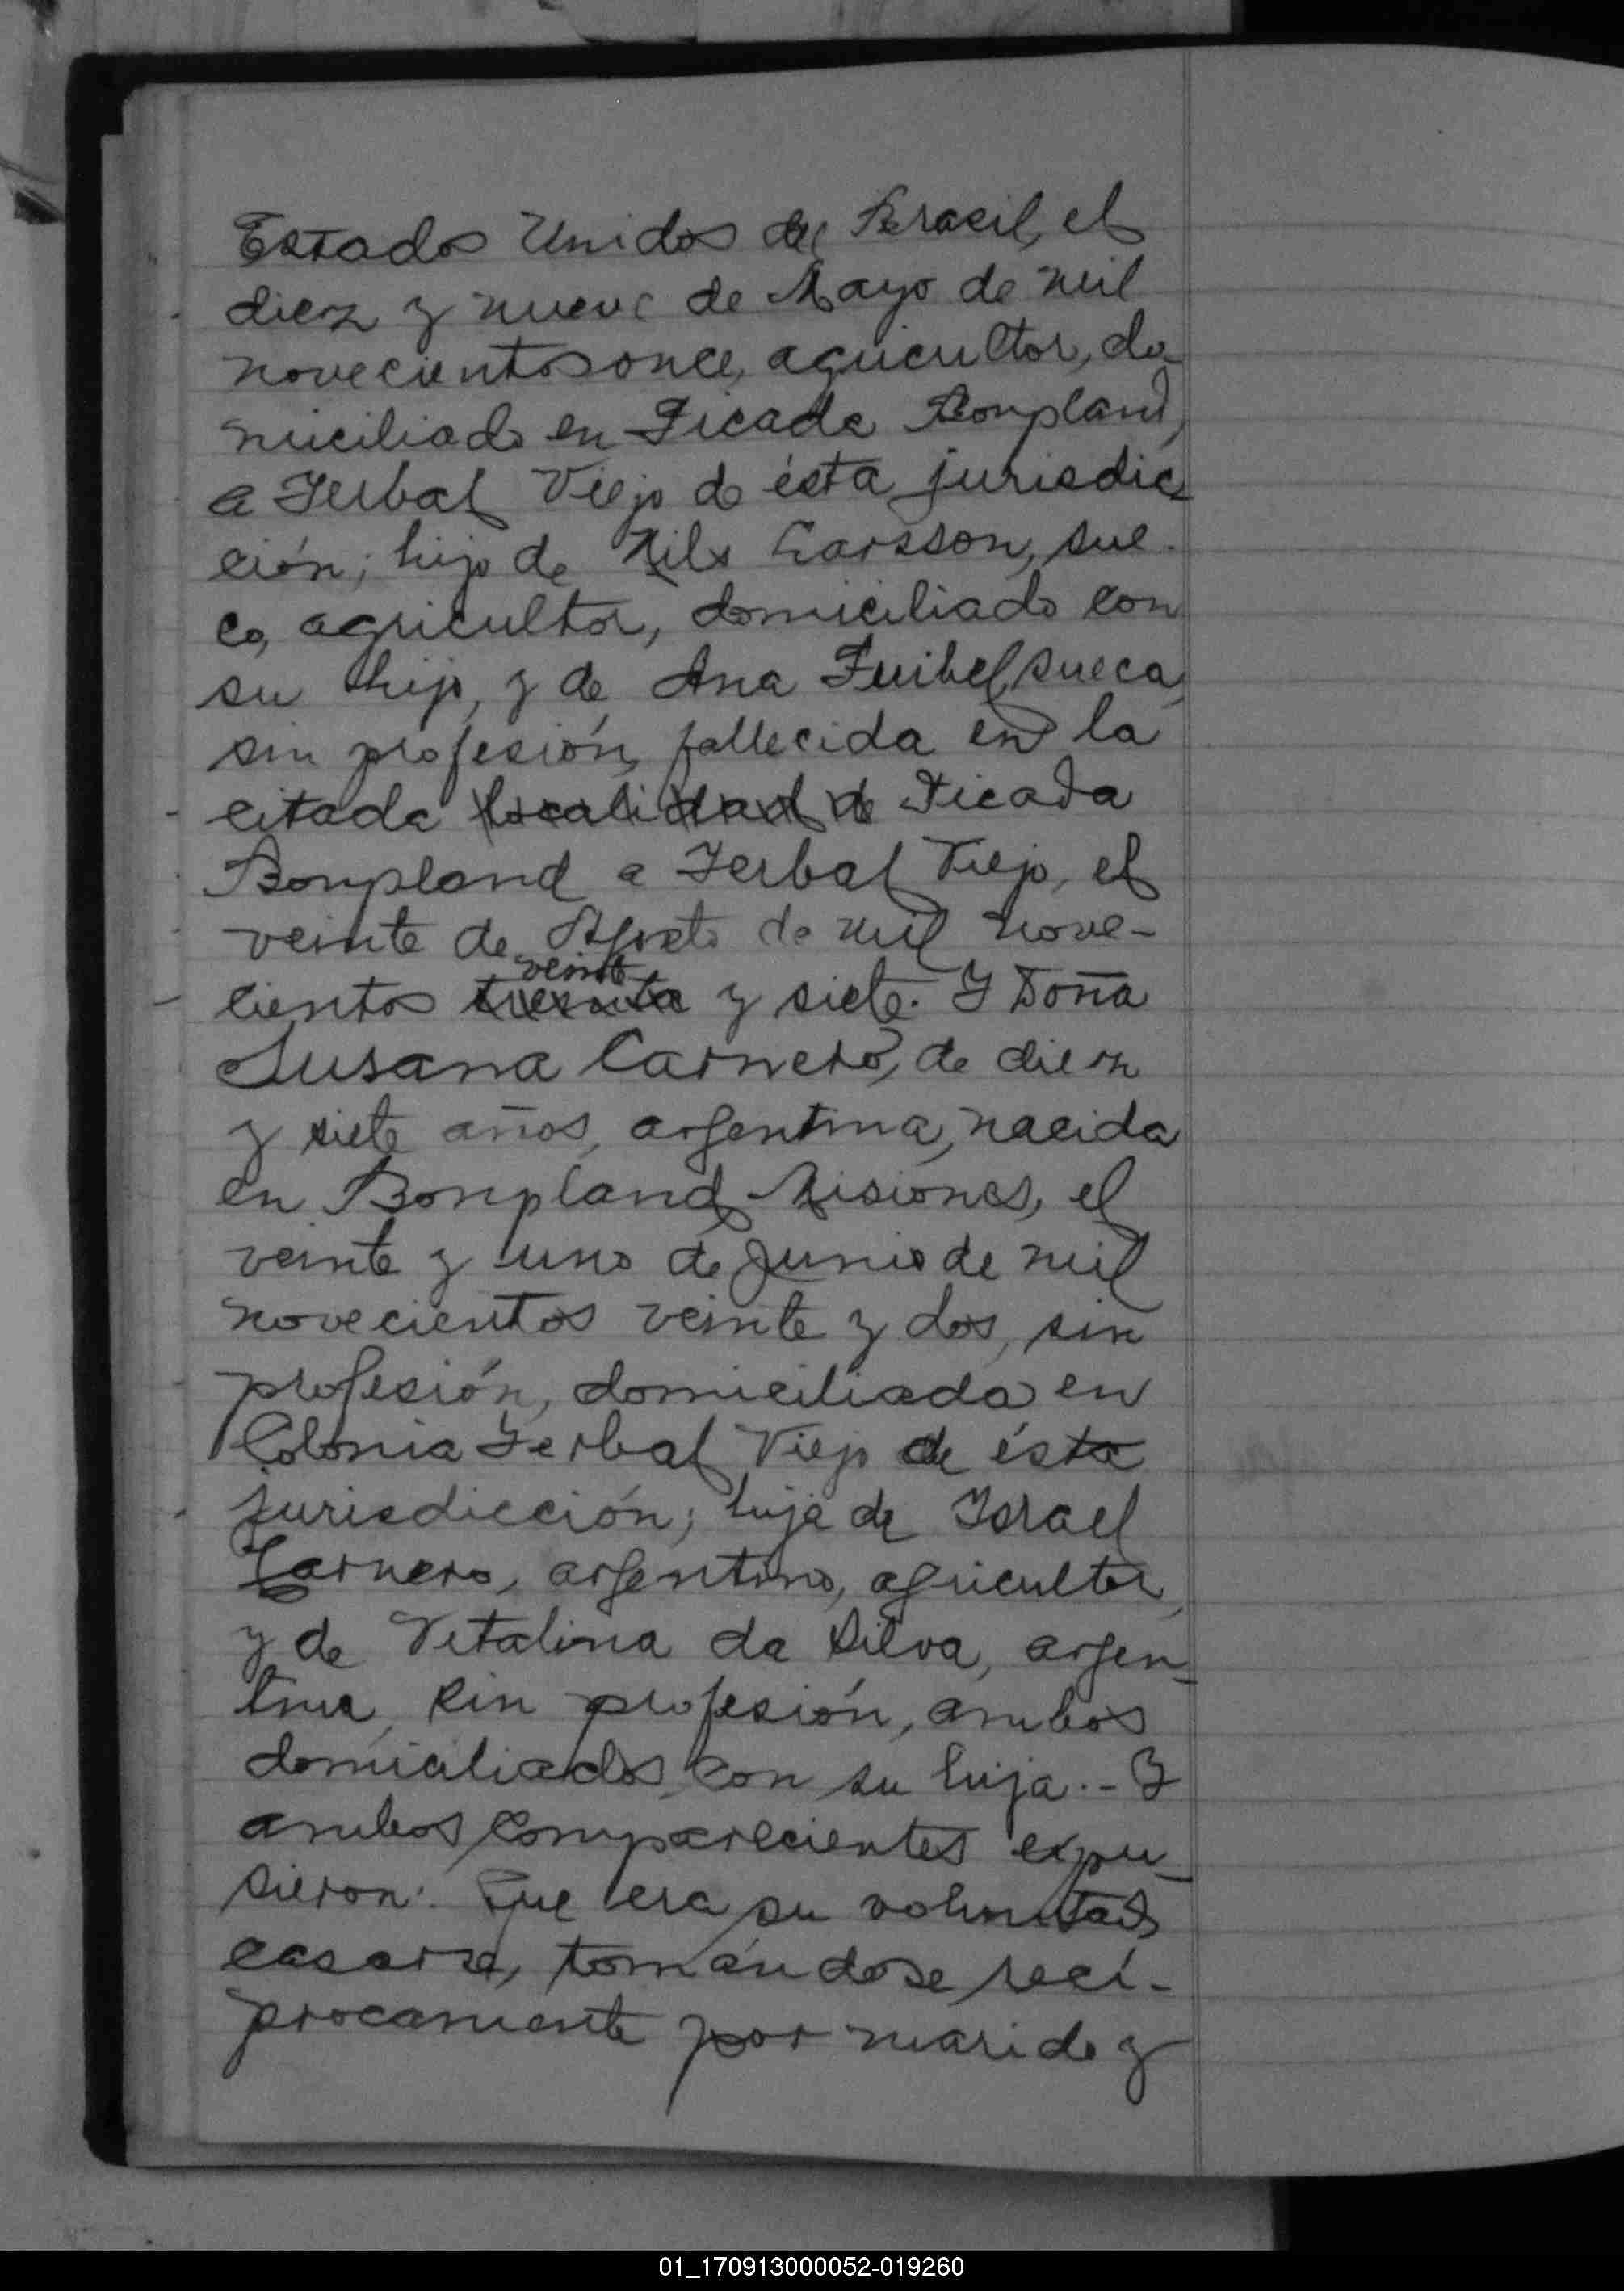 Estados Unidos del Brasil, el
diez y nueve de Mayo de mil
novecientos once, agricultor, do-
miciliado en Picada Bonpland,
a Yerbal Viejo de ésta jurisdic-
ción; hijo de Nils Larsson, sue-
co, agricultor, domiciliado con
su hijo, y de Ana sueca,
sin profesión, fallecida en la
citada localidad de Picada
Bonpland a Yerbal Viejo, el
veinte de Agosto de mil nove-
veinte
cientos treinta y siete. Y Doña
Susana Carnero, de diez
y siete años, argentina, nacida
en Bonpland, Misiones, el
veinte y uno de Junio de mil
novecientos veinte y dos, sin
profesión, domiciliada en
Colonia Yerbal Viejo de ésta
jurisdicción; hija de Israel
Carnero, argentino, agricultor,
y de Vitalina da Silva, argen-
tina, sin profesión, ambos
domiciliados con su hija.- Y
ambos comparecientes expu-
sieron: Que era su voluntad
casarse, tomándose recí-
procamente por marido y
01_170913000052-019260